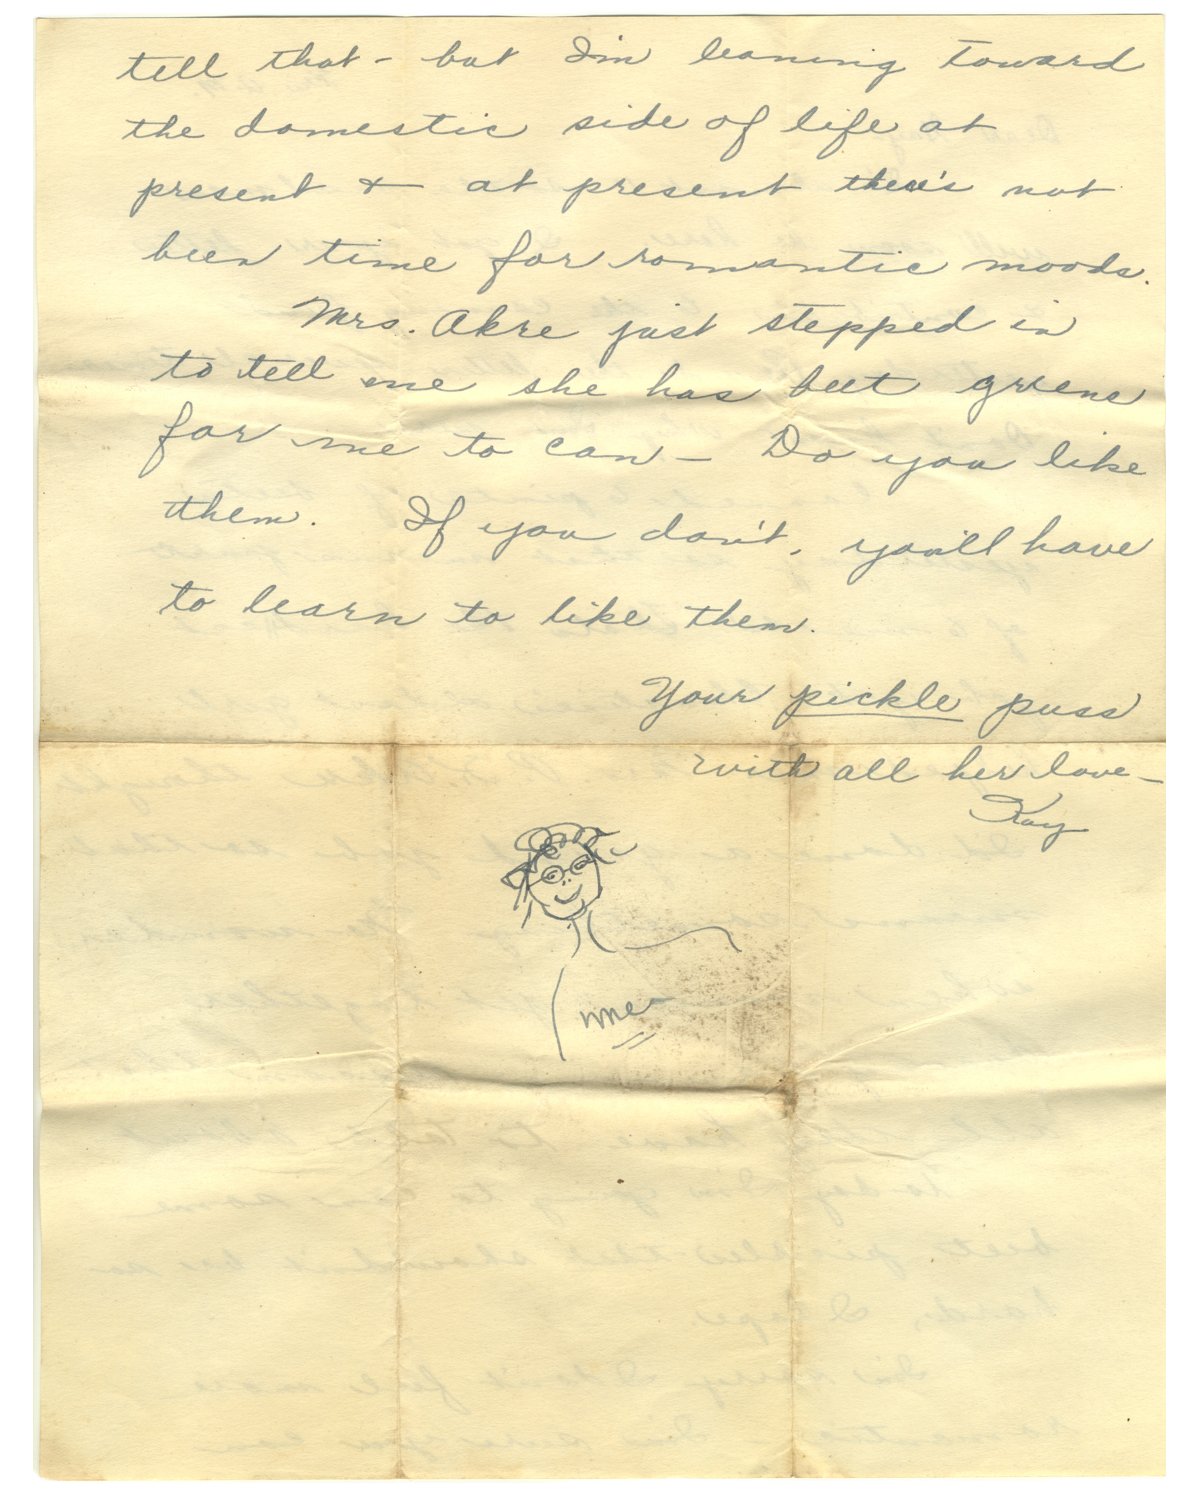 tell that - but I'm leaning toward
the domestic side of life at
present & at present there's not
been time for romantic moods.
Mrs. Akre just stepped in
to tell me she has beet greens
for me to can - Do you like
them. If you don't, you'll have
to learn to like them.
Your pickle puss
with all her love -
Kay
me